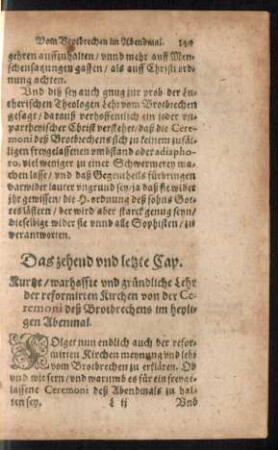 Vom Brotbrechen im Abendmal.
gehren auffzuhalten / vnnd mehr auff Men-
schensatzungen gaffen / als auff Christi ord-
nung achten.
Vnd diß sey auch gnug zur prob der Lu-
therischen Theologen Lehr vom Brotbrechen
gesagt / darauß verhoffentlich ein jeder vn-
partheyischer Christ verstehet / daß die Cere-
moni deß Brotbrechens sich zu keinem zufäl-
ligen freygelassenen vmbstand oder adiapho-
ro, viel weniger zu einer Schwermerey ma-
chen lasse / vnd daß Gegentheils fürbringen
darwider lauter vngrund sey / ja daß sie wider
jhr gewissen / die H. ordnung deß sohns Got-
tes lästern / der wird aber starck genug seyn /
dieselbige wider sie vnnd alle Sophisten / zu
verantworten.
Das zehend vnd letzte Cap.
Kurtze / warhaffte vnd gründliche Lehr
der reformirten Kirchen von der Ce-
remoni deß Brotbrechens im heyli-
gen Abenmal.
FOlget nun endlich auch der refor-
mirten Kirchen meynung vnd lehr
vom Brotbrechen zu erklären. Ob
vnd wie fern / vnd warumb es für ein freyge-
lassene Ceremoni deß Abendmals zu hal-
ten sey.
ij
Vnd